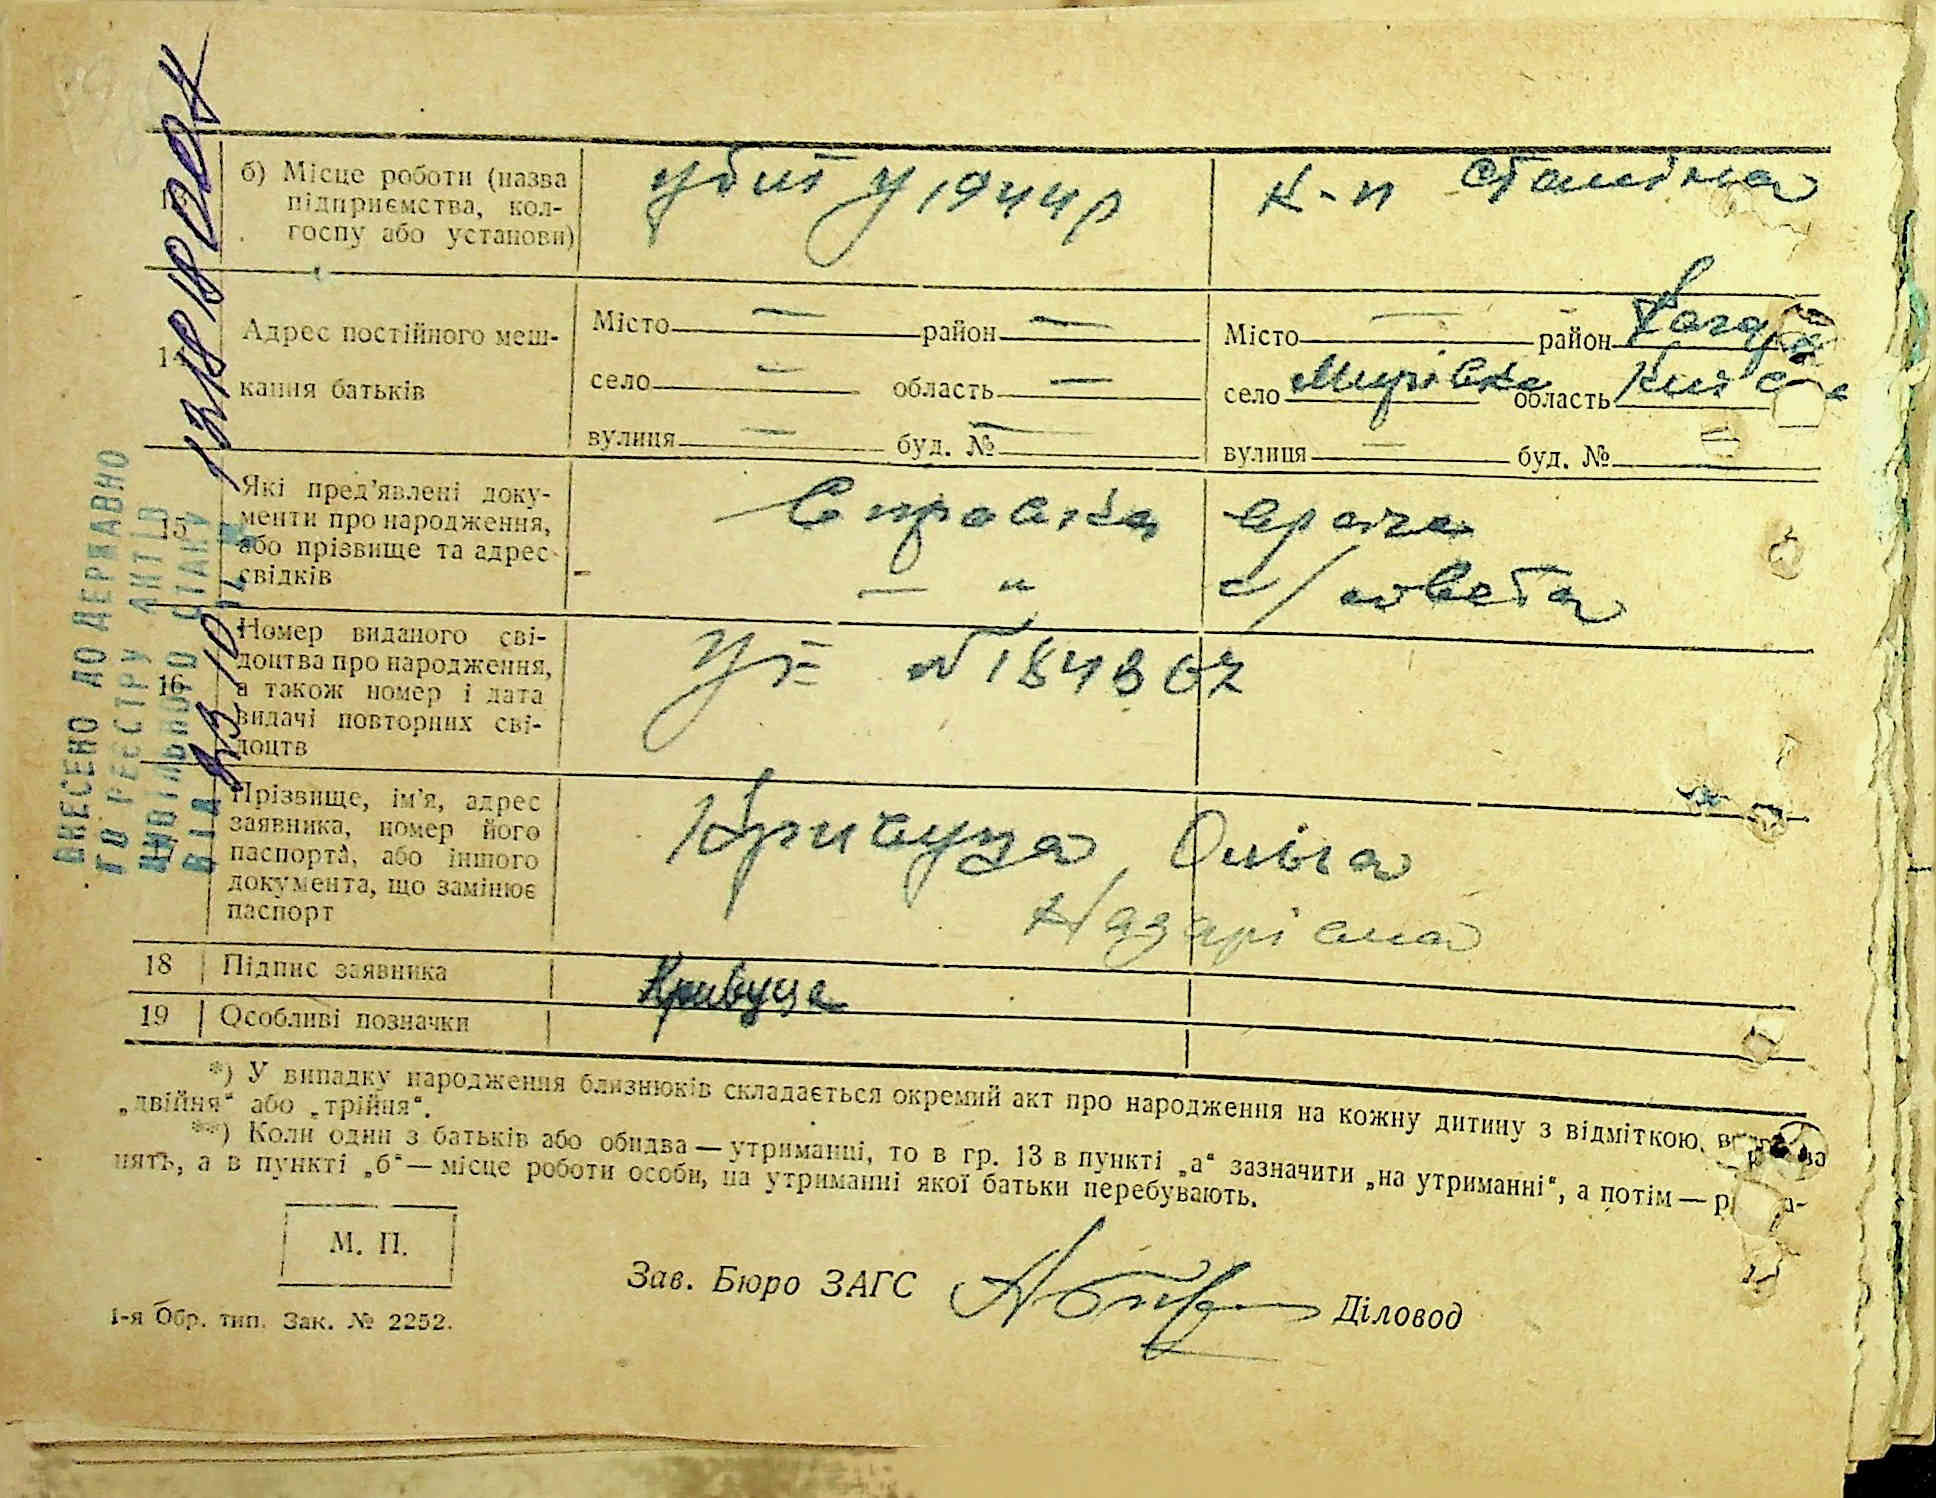 б) Місце роботи (назва
підприємства, кол-
госпу або установи)
убит у 1944 р
к-п Сталіна
14
Адрес постійного меш-
кання батьків
Місто — район —
село — область —
вулиця — буд. № —
Місто — район
село Мирівка область
вулиця — буд. №
15
Які пред'явлені доку-
менти про народження,
або прізвище та адрес
свідків
Справка врача
— " с/совета
16
Номер виданого сві-
доцтва про народження,
а також номер і дата
видачі повторних сві-
доцтв
№ 184867
Прізвище, ім'я, адрес
заявника, номер його
паспорта, або іншого
документа, що замінює
паспорт
Кривуца Ольга
Назарівна
18 Підпис заявника
Кривуца
19 Особливі позначки
*) У випадку народження близнюків складається окремий акт про народження на кожну дитину з відміткою,
„двійня“ або „трійня“.
**) Коли один з батьків або обидва — утриманні, то в гр. 13 в пункті „а“ зазначити „на утриманні“, а потім —
нять, а в пункті „б“ — місце роботи особи, на утриманні якої батьки перебувають.
М. П.
Зав. Бюро ЗАГС
Діловод
1-я Обр. тип. Зак. № 2252.
ВНЕСЕНО ДО ДЕРЖАВНО
ГО РЕЄСТРУ АКТІВ
ЦИВІЛЬНОГО СТАНУ
ВІД